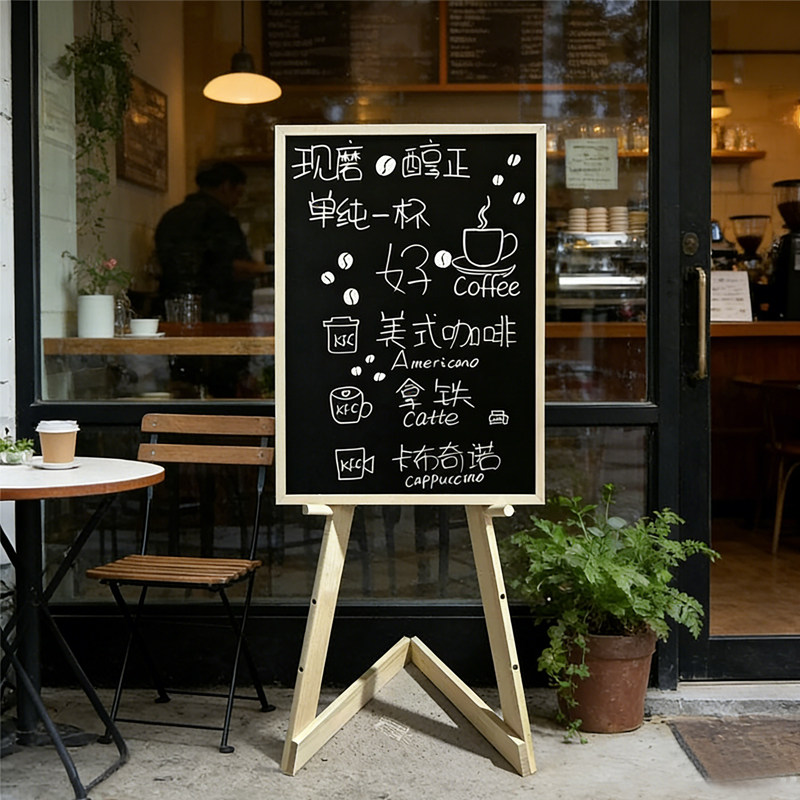 现磨 醇正
单纯一杯
好
coffee
KFC
美式咖啡
Americano
KFC
拿铁
Catte
KFC
卡布奇诺
cappuccino